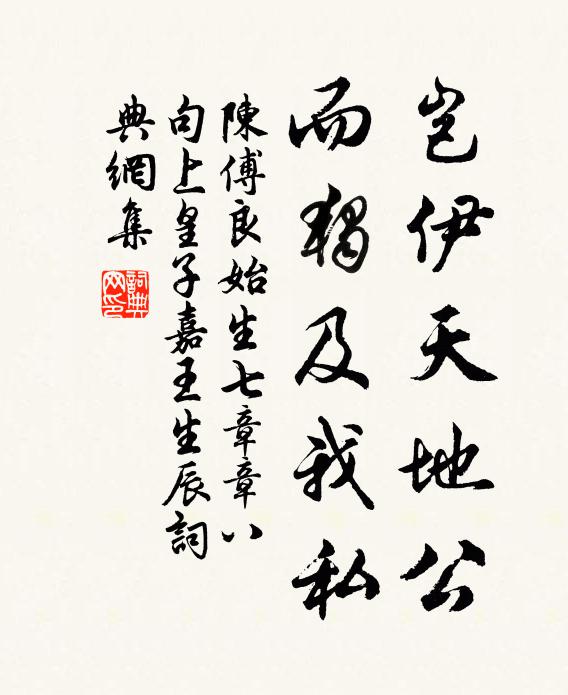 岂伊天地公
而獨及我私
陳傅良始生七章章八
句上皇子嘉王生辰詞
典網集
詞典
网印